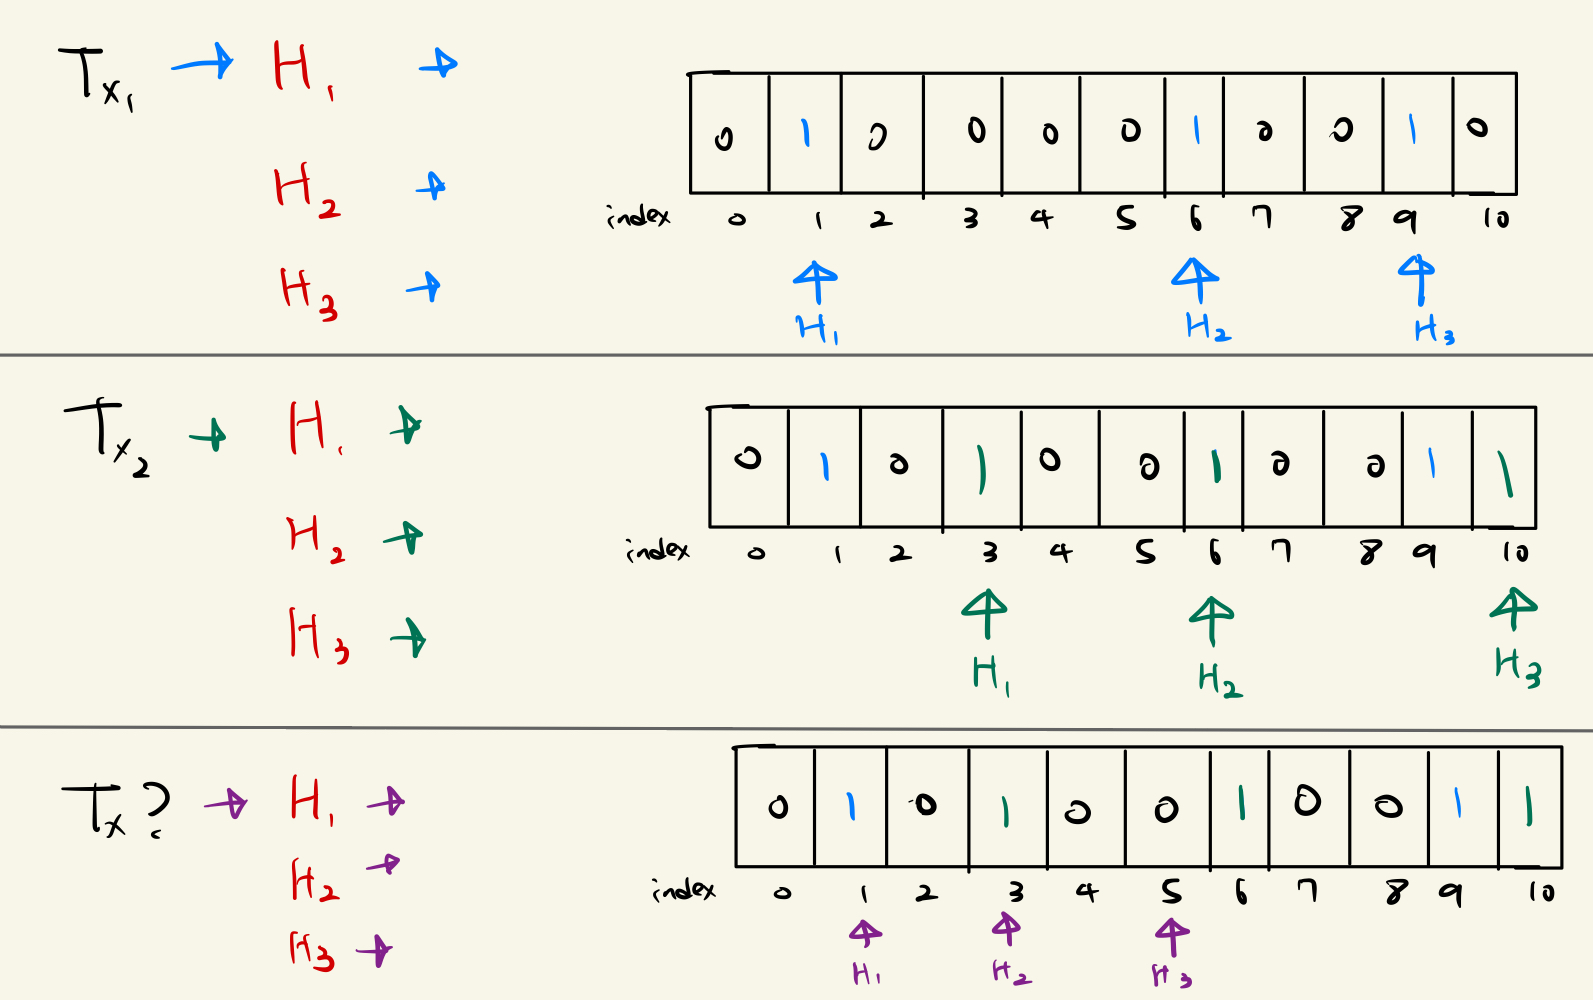 Tx₁ → H₁ →
0 1 0 0 0 0 1 0 0 1 0
H₂ →
index 0 1 2 3 4 5 6 7 8 9 10
H₃ →
H₁ H₂ H₃
Tx₂ → H₁ →
0 1 0 1 0 0 1 0 0 1 1
H₂ →
index 0 1 2 3 4 5 6 7 8 9 10
H₃ →
H₁ H₂ H₃
Tx? → H₁ →
0 1 0 1 0 0 1 0 0 1 1
H₂ →
index 0 1 2 3 4 5 6 7 8 9 10
H₃ →
H₁ H₂ H₃